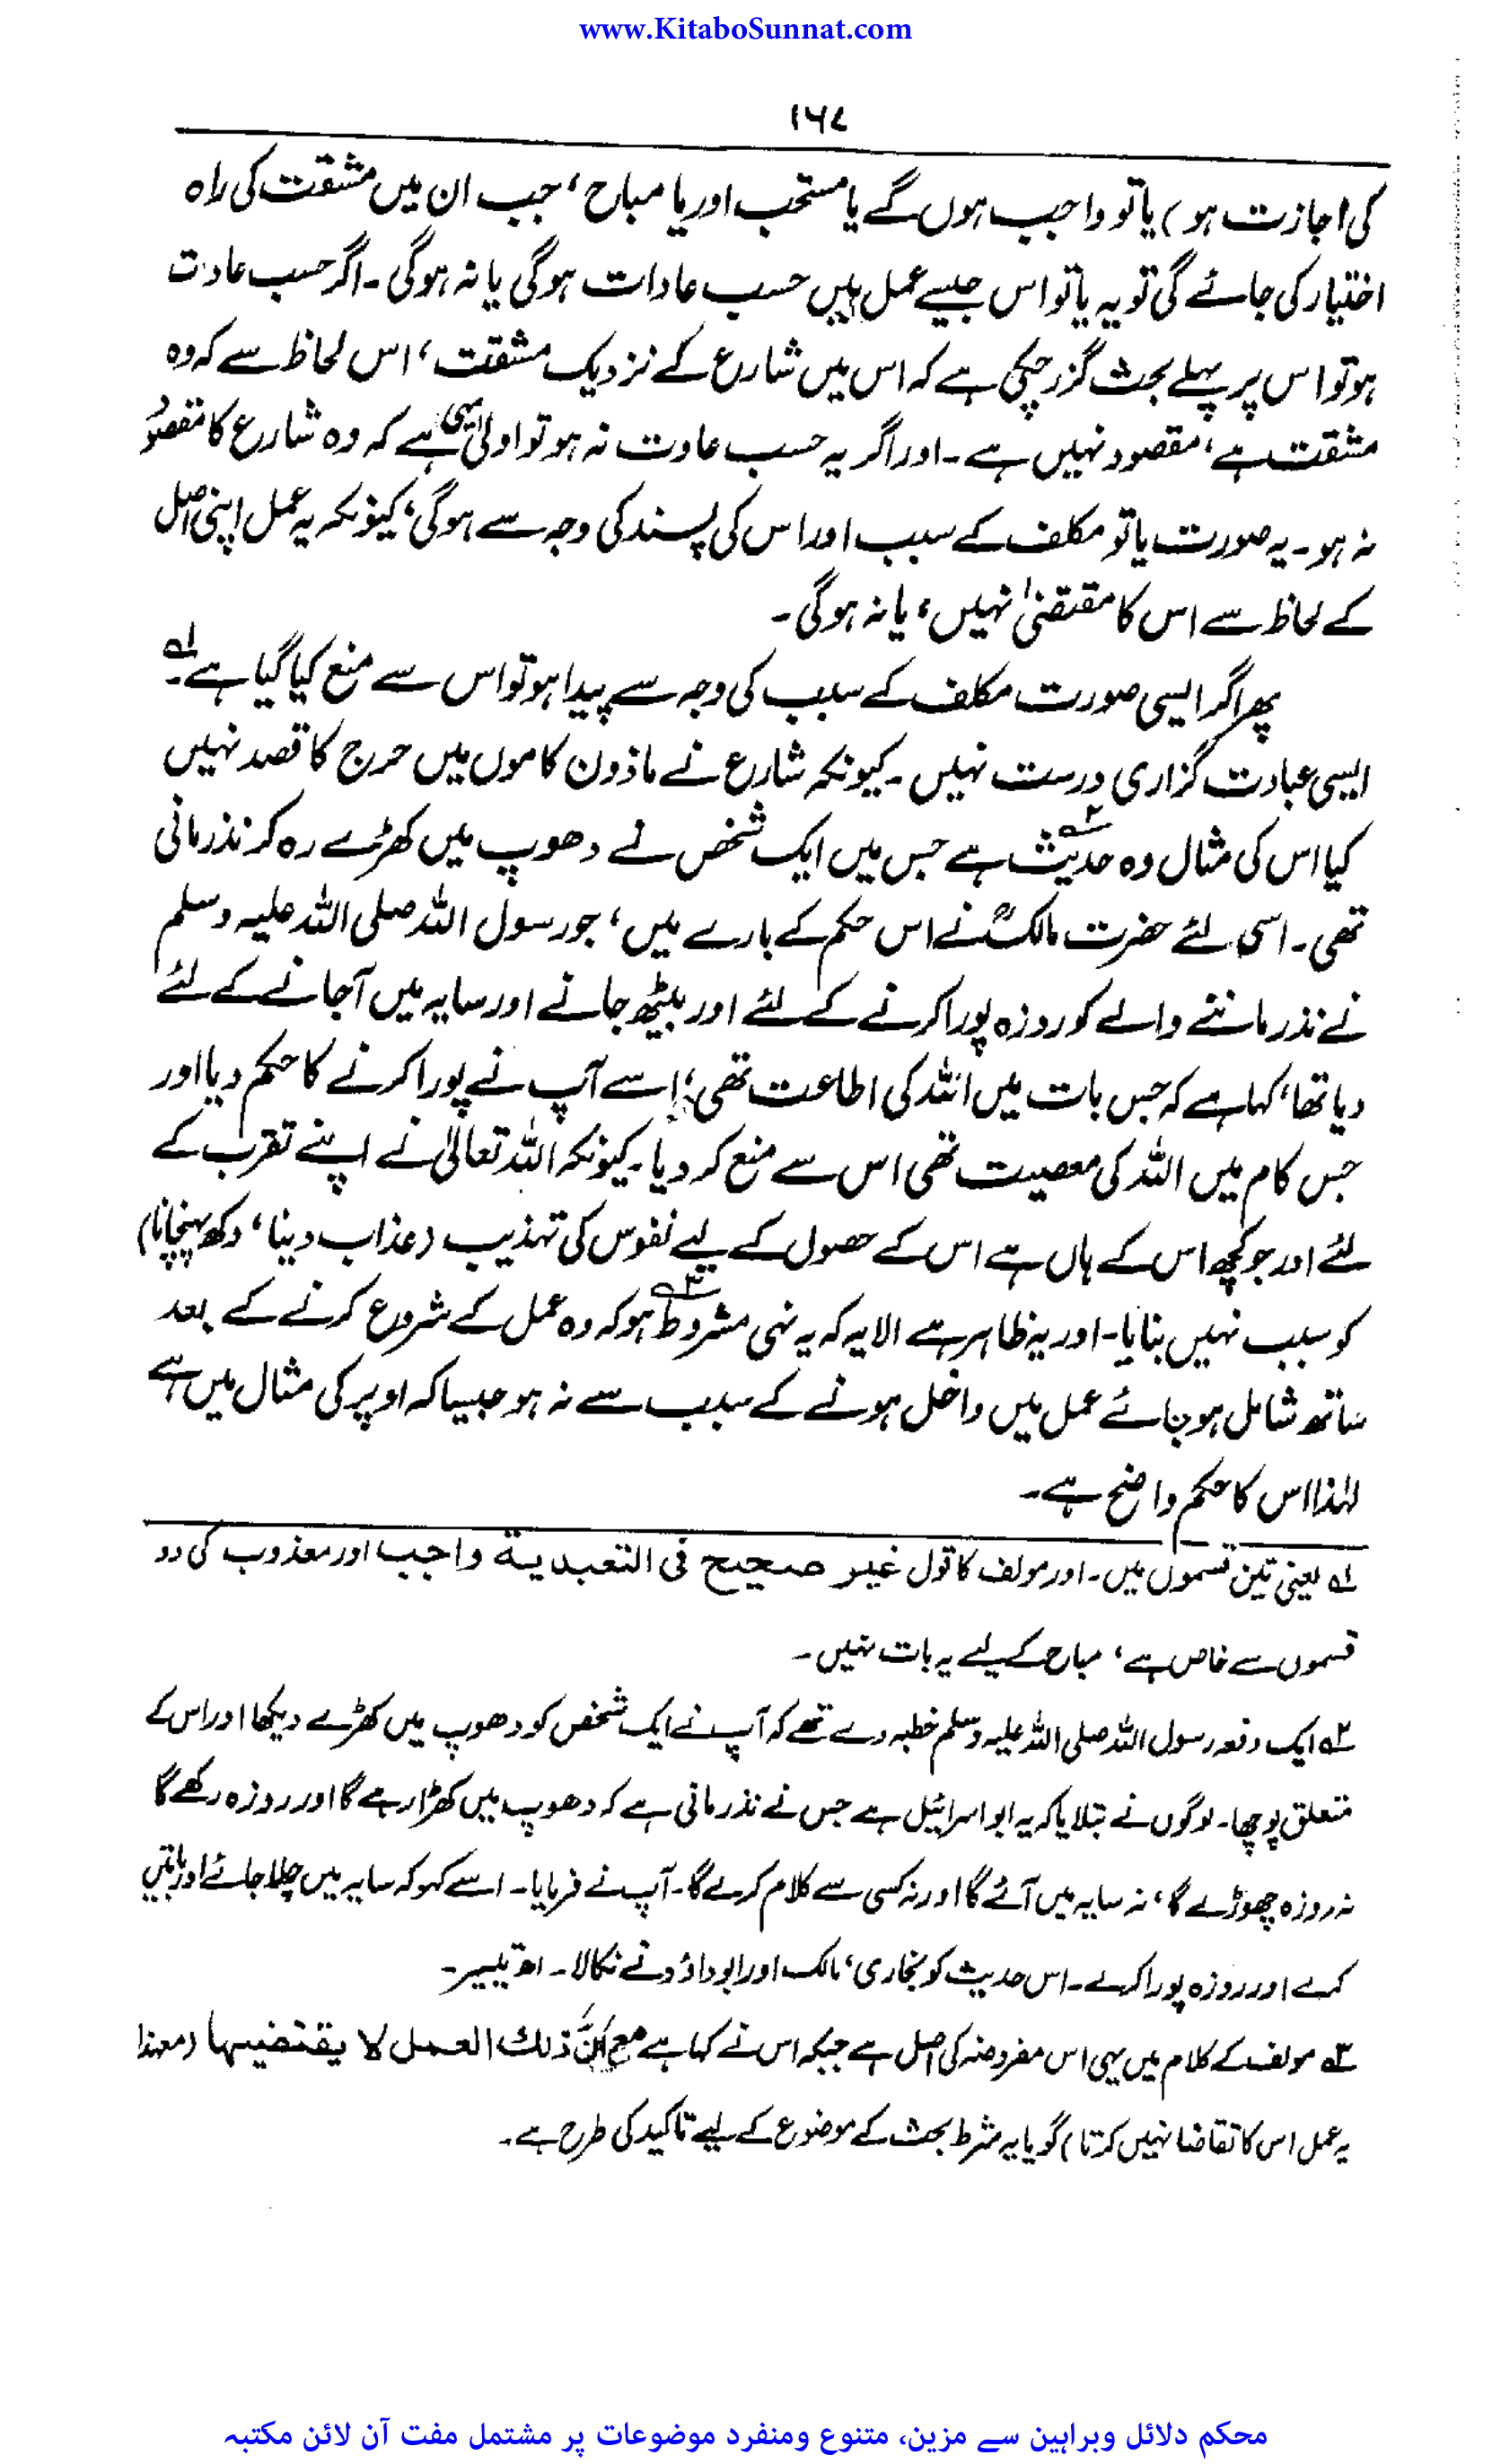 www.KitaboSunnat.com
۱۶۷
کی اجازت ہو) یا تو واجب ہوں گے یا مستحب اور یا مباح، جب ان میں مشقت کی راہ
اختیار کی جائے گی تو یہ یا تو اس جیسے عمل میں حسب عادات ہوگی یا نہ ہوگی۔ اگر حسب عادت
ہو تو اس پر پہلے بحث گزر چکی ہے کہ اس میں شارع کے نزدیک مشقت، اس لحاظ سے کہ وہ
مشقت ہے، مقصود نہیں ہے۔ اور اگر یہ حسب عادت نہ ہو تو اولیٰ یہی ہے کہ وہ شارع کا مقصود
نہ ہو۔ یہ صورت یا تو مکلف کے سبب اور اس کی پسند کی وجہ سے ہوگی، کیونکہ یہ عمل اپنی اصل
کے لحاظ سے اس کا مقتضیٰ نہیں، یا نہ ہوگی۔
پھر اگر ایسی صورت مکلف کے سبب کی وجہ سے پیدا ہو تو اس سے منع کیا گیا ہے۔ ۱؎
ایسی عبادت گزاری درست نہیں۔ کیونکہ شارع نے ماذون کاموں میں حرج کا قصد نہیں
کیا اس کی مثال وہ حدیث ۲؎ ہے جس میں ایک شخص نے دھوپ میں کھڑے رہ کر نذر مانی
تھی۔ اسی لئے حضرت مالکؒ نے اس حکم کے بارے میں، جو رسول اللہ صلی اللہ علیہ وسلم
نے نذر ماننے والے کو روزہ پورا کرنے کے لئے اور بیٹھ جانے اور سایہ میں آجانے کے لئے
دیا تھا، کہا ہے کہ جس بات میں اللہ کی اطاعت تھی، اسے آپ نے پورا کرنے کا حکم دیا اور
جس کام میں اللہ کی معصیت تھی اس سے منع کر دیا۔ کیونکہ اللہ تعالیٰ نے اپنے تقرب کے
لئے اور جو کچھ اس کے ہاں ہے اس کے حصول کے لیے نفوس کی تہذیب (عذاب دینا، دکھ پہنچانا)
کو سبب نہیں بنایا۔ اور یہ ظاہر ہے الا یہ کہ یہ نہی مشروط ۳؎ ہو کہ وہ عمل کے شروع کرنے کے بعد
ساتھ شامل ہو جائے عمل میں داخل ہونے کے سبب سے نہ ہو جیسا کہ اوپر کی مثال میں ہے
لہٰذا اس کا حکم واضح ہے۔
۱؎ یعنی تین قسموں میں۔ اور مولف کا قول غیر صحیح فی التعبدیة واجب اور معذوب کی دو
قسموں سے خاص ہے، مباح کے لیے یہ بات نہیں۔
۲؎ ایک دفعہ رسول اللہ صلی اللہ علیہ وسلم خطبہ دے تھے کہ آپ نے ایک شخص کو دھوپ میں کھڑے دیکھا اور اس کے
متعلق پوچھا۔ لوگوں نے بتلایا کہ یہ ابو اسرائیل ہے جس نے نذر مانی ہے کہ دھوپ میں کھڑا رہے گا اور روزہ رکھے گا
نہ روزہ چھوڑے گا، نہ سایہ میں آئے گا اور نہ کسی سے کلام کرے گا۔ آپ نے فرمایا۔ اسے کہو کہ سایہ میں چلا جائے اور باتیں
کرے اور روزہ پورا کرے۔ اس حدیث کو بخاری، مالک اور ابو داؤد نے نکالا۔ اھ تیسیر۔
۳؎ مولف کے کلام میں یہی اس مفروضہ کی اصل ہے جبکہ اس نے کہا ہے مع اَنَّ ذلك العمل لا يقتضيها (معہذا
یہ عمل اس کا تقاضا نہیں کرتا) گویا یہ شرط بحث کے موضوع کے لیے تاکید کی طرح ہے۔
محکم دلائل وبراہین سے مزین، متنوع ومنفرد موضوعات پر مشتمل مفت آن لائن مکتبہ